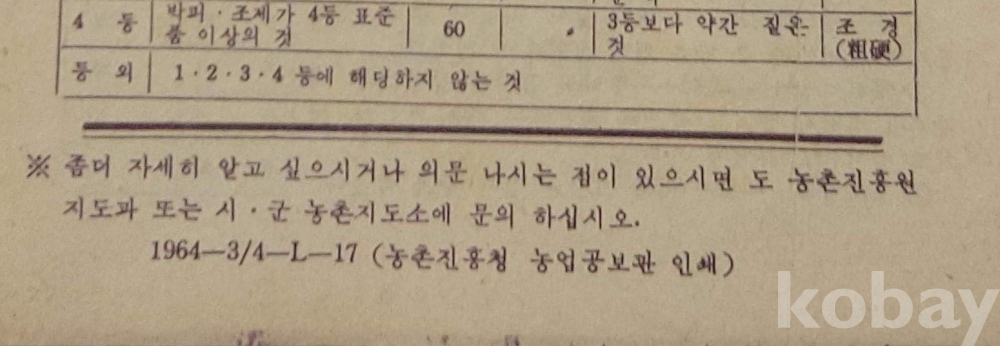 4 등 박피·조제가 4등 표준 60 3등보다 약간 짙은 조 경
품 이상의 것 것 (粗硬)
등 외 1·2·3·4 등에 해당하지 않는 것
※ 좀더 자세히 알고 싶으시거나 의문 나시는 점이 있으시면 도 농촌진흥원
지도과 또는 시·군 농촌지도소에 문의 하십시오.
1964—3/4—L—17 (농촌진흥청 농업공보관 인쇄)
kobay